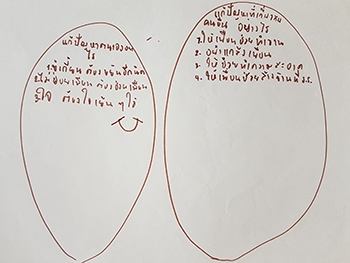 แก้ปัญหาตนเองอย่าง
ไร
1.ขี้เกียจ ต้องขยันอีกนิด
2.ไม่ช่วยเพื่อน ต้องช่วยเพื่อน
3.ใจ ต้องใจเย็น ๆ ไว้
แก้ปัญหาที่เกี่ยวกับ
คนอื่น อย่างไร
1.ให้เพื่อนช่วยทำงาน
2. อย่าแกล้งเพื่อน
3. ให้ช่วยทำความสะอาด
4. ให้เพื่อนช่วยล้างจานที่ ร.ร.